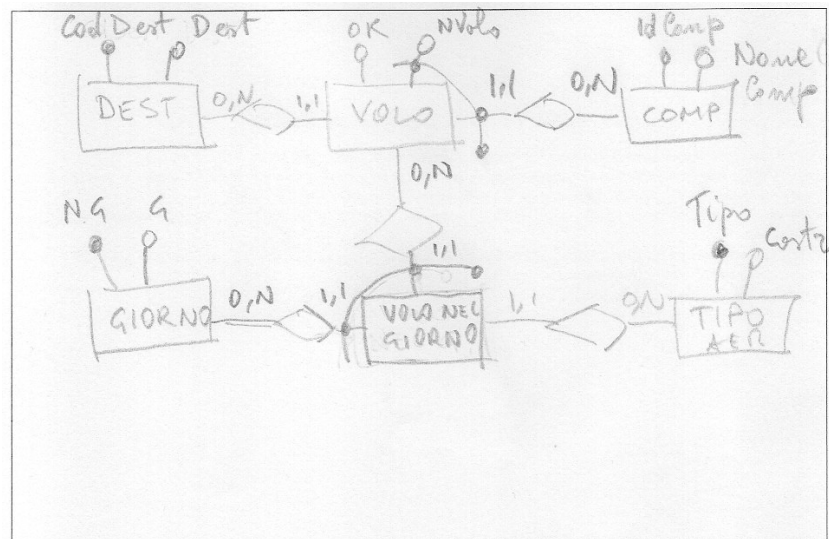 CodDest Dest OK NVolo IdComp Nome Comp
DEST 0,N 1,1 VOLO 1,1 0,N COMP
0,N
NG G Tipo
1,1
GIORNO 0,N 1,1 VOLO NEL GIORNO 1,1 0,N TIPO AER